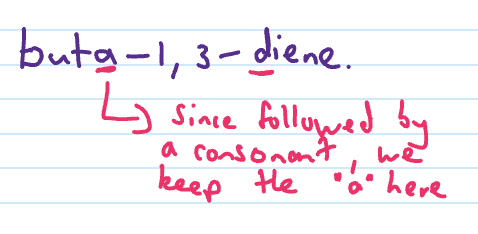 buta-1,3-diene.
since followed by
a consonant, we
keep the "a" here